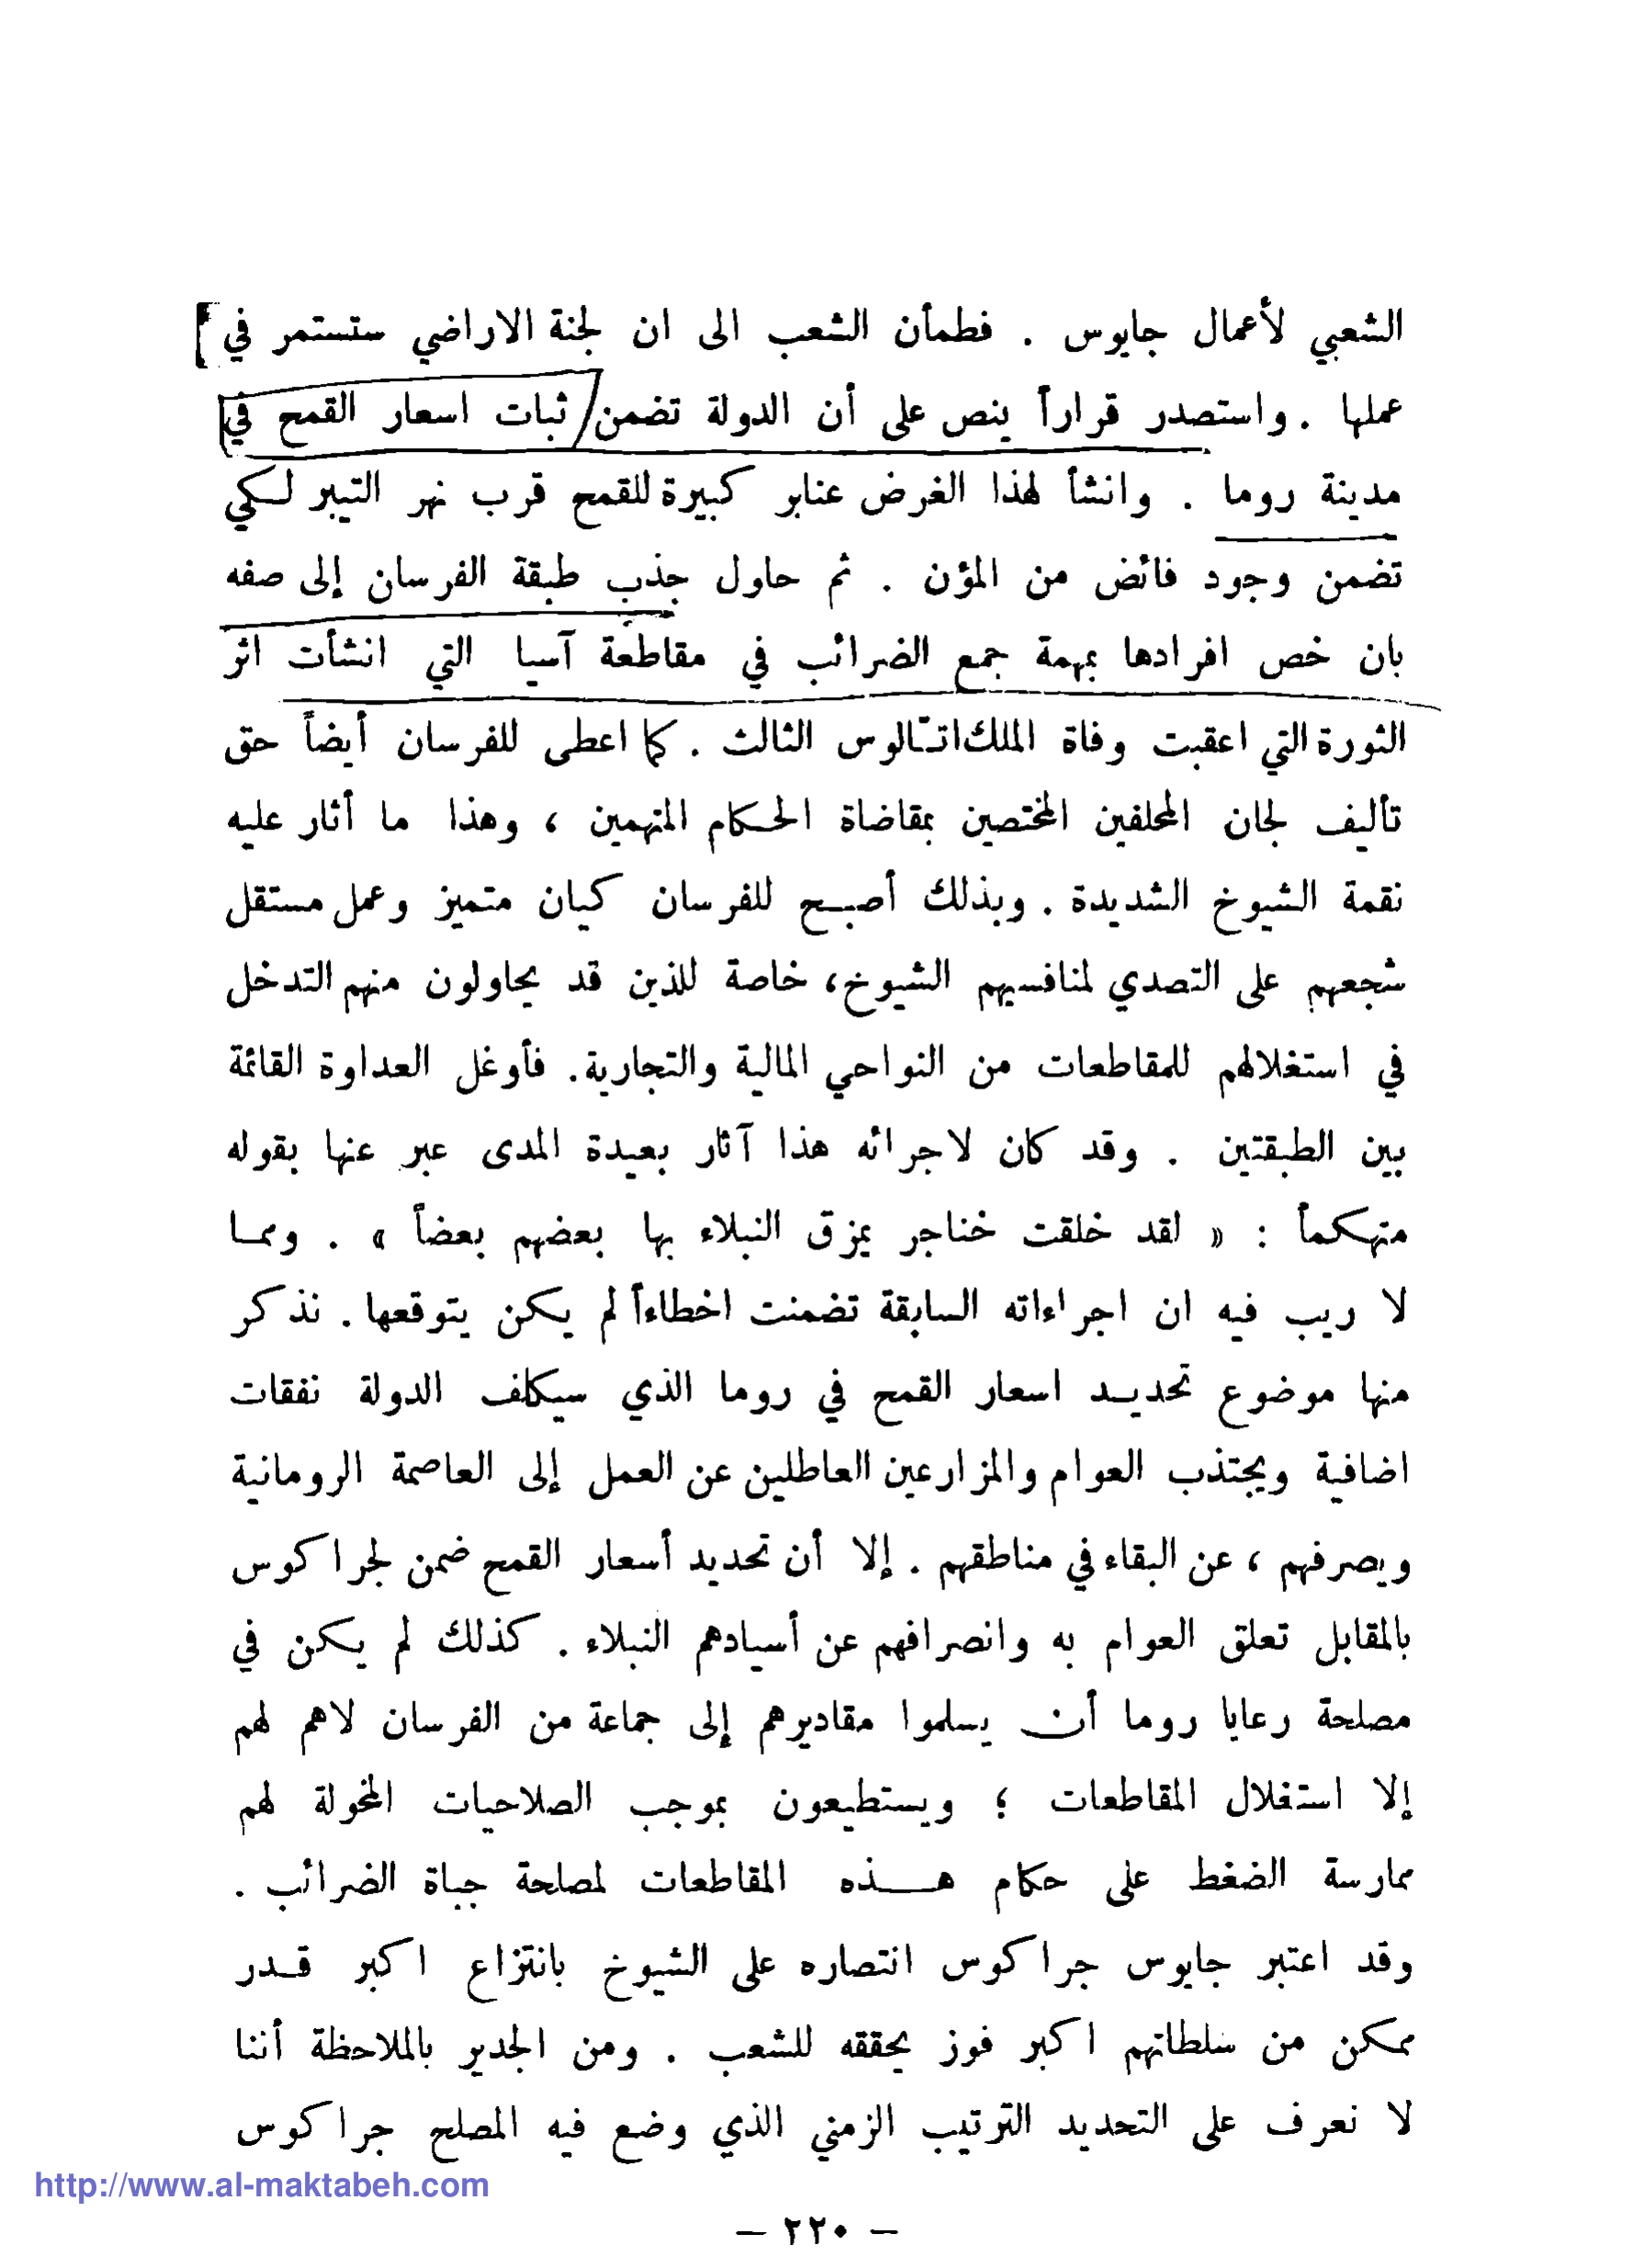 الشعبي لأعمال جايوس . فطمأن الشعب الى ان لجنة الاراضي ستستمر في
عملها . واستصدر قراراً ينص على أن الدولة تضمن ثبات اسعار القمح في
مدينة روما . وانشأ لهذا الغرض عنابر كبيرة للقمح قرب نهر التيبر لكي
تضمن وجود فائض من المؤن . ثم حاول جذب طبقة الفرسان إلى صفه
بان خص افرادها بمهمة جمع الضرائب في مقاطعة آسيا التي انشأت اثر
الثورة التي اعقبت وفاة الملك اتـّالوس الثالث . كما اعطى للفرسان أيضاً حق
تأليف لجان المحلفين المختصين بمقاضاة الحكام المتهمين ، وهذا ما أثار عليه
نقمة الشيوخ الشديدة . وبذلك أصبح للفرسان كيان متميز وعمل مستقل
شجعهم على التصدي لمنافسيهم الشيوخ ، خاصة للذين قد يحاولون منهم التدخل
في استغلالهم للمقاطعات من النواحي المالية والتجارية . فأوغل العداوة القائمة
بين الطبقتين . وقد كان لاجرائه هذا آثار بعيدة المدى عبر عنها بقوله
متهكماً : « لقد خلقت خناجر يمزق النبلاء بها بعضهم بعضاً » . ومما
لا ريب فيه ان اجراءاته السابقة تضمنت اخطاءاً لم يكن يتوقعها . نذكر
منها موضوع تحديد اسعار القمح في روما الذي سيكلف الدولة نفقات
اضافية ويجتذب العوام والمزارعين العاطلين عن العمل إلى العاصمة الرومانية
ويصرفهم ، عن البقاء في مناطقهم . إلا أن تحديد أسعار القمح ضمن لجراكوس
بالمقابل تعلق العوام به وانصرافهم عن أسيادهم النبلاء . كذلك لم يكن في
مصلحة رعايا روما أن يسلموا مقاديرهم إلى جماعة من الفرسان لاهم لهم
إلا استغلال المقاطعات ؛ ويستطيعون بموجب الصلاحيات المخولة لهم
ممارسة الضغط على حكام هذه المقاطعات لمصلحة جباة الضرائب .
وقد اعتبر جايوس جراكوس انتصاره على الشيوخ بانتزاع اكبر قدر
ممكن من سلطاتهم اكبر فوز يحققه للشعب . ومن الجدير بالملاحظة أننا
لا نعرف على التحديد الترتيب الزمني الذي وضع فيه المصلح جراكوس
http://www.al-maktabeh.com
— ٢٢٠ —